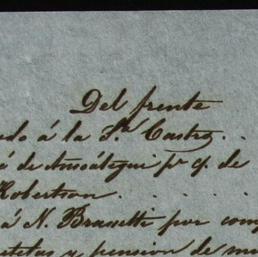 Del frente
edo á la S.ª Castro . .
á de Anzoátegui p.r cª. de
Robertson . . . .
á N. Brunette por com
tetas y pension de mi